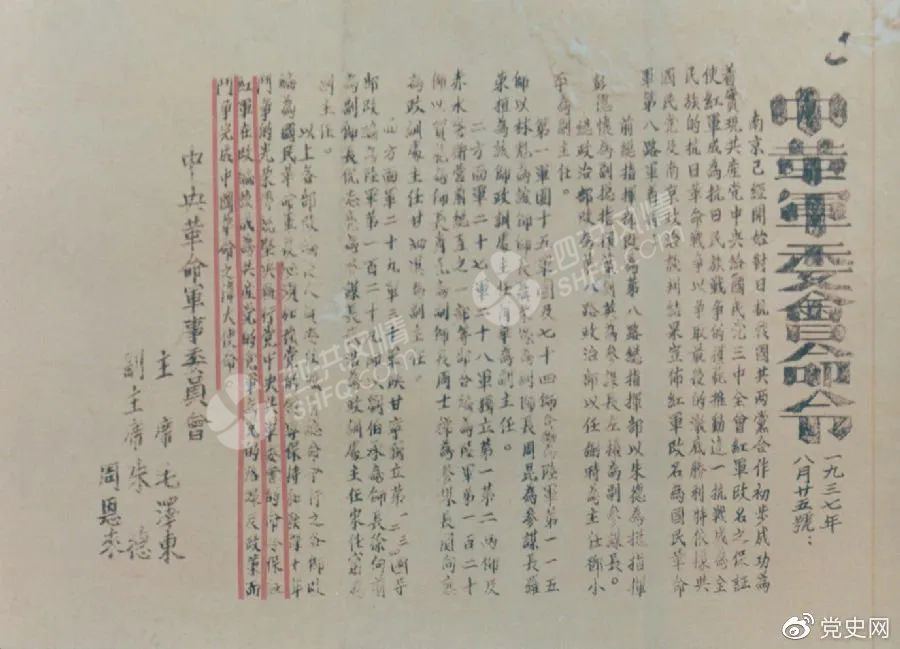 中革軍委會命令
一九三七年
八月廿五號：
南京已經開始對日抗戰國共兩黨合作初步成功為
着實現共產党中央給國民党三中全會紅軍改名之保証
使紅軍成為抗日民族戰爭的模範推動這一抗戰成為全
民族的抗日革命戰爭以爭取最後的澈底勝利特依據共
國民党及南京政治談判結果宣佈紅軍改名為國民革命
軍第八路軍着將
前總指揮部改為第八路總指揮部以朱德為總指揮
彭德懷為副總指揮葉劍英為參謀長左權為副參謀長。
總政治部改為第八路政治部以任弼時為主任鄧小
平為副主任。
第一軍團十五軍團及七十四師合編為陸軍第一一五
師以林彪為該師師長聶榮臻為副師長周昆為參謀長羅
榮桓為該師政訓處主任蕭華為副主任。
二方面軍二十七軍二十八軍獨立第一第二兩師及
赤水警衛營前總直之一部等部合編為陸軍第一百二十
師以賀龍為師長蕭克為副師長周士第為參謀長關向應
為政訓處主任甘泗淇為副主任。
四方面軍二十九軍三十軍陝甘寧獨立第一二三四等
部改編為陸軍第一百二十九師以劉伯承為師長徐向前
為副師長倪志亮為參謀長張浩為政訓處主任宋任窮為
副主任。
以上各部改編
編為國民革命軍後必須加強党的保持和發揮十年
鬥爭的光榮傳統堅決執行党中央與軍委會的命令保証
紅軍在改編後成為共產党的党軍為党的路線及政策而
鬥爭完成中國革命之偉大使命
中央革命軍事委員會
主席毛澤東
副主席朱德
周恩來
四史共成風情
SHFQ.COM
四史共成風情
SHFQ.COM
党史网